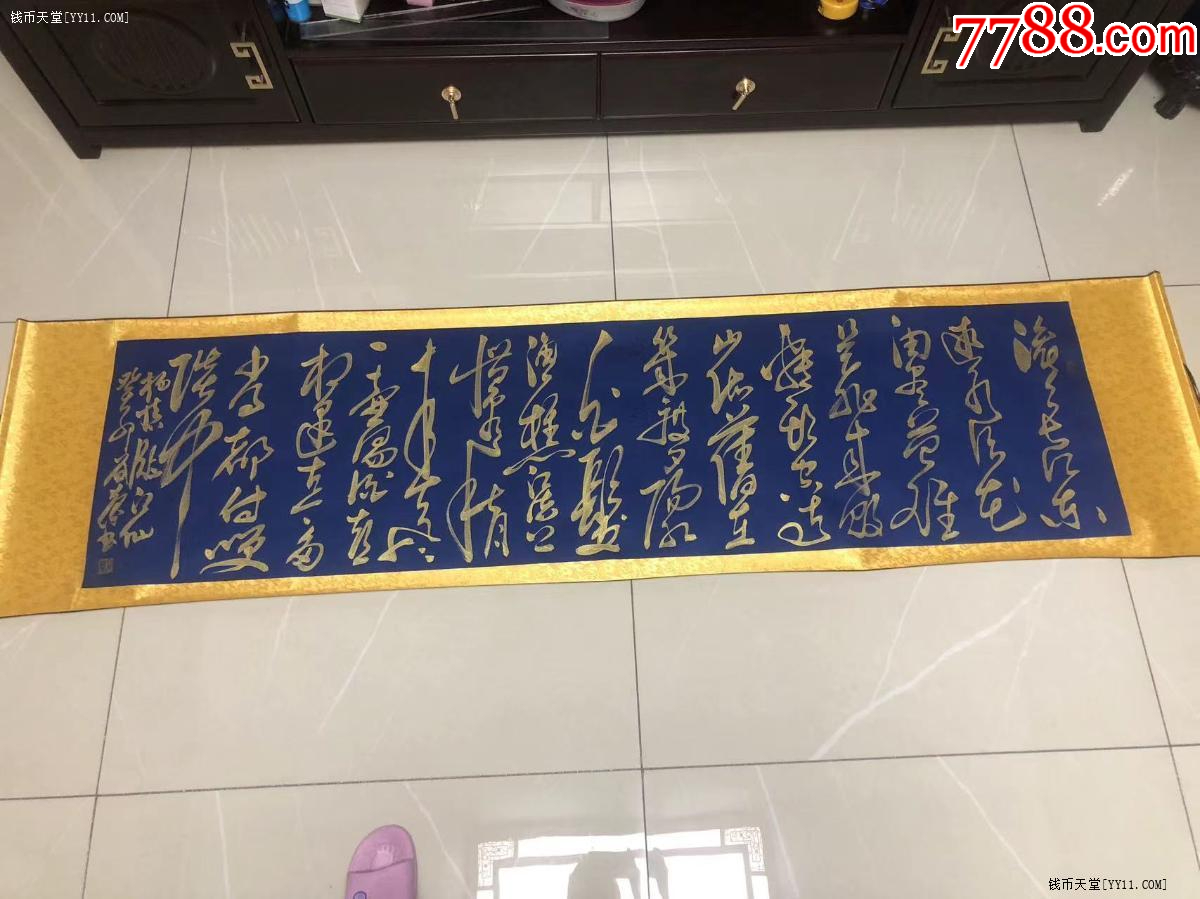 钱币天堂[YY11.COM]
7788.com
滚滚长江东
逝水浪花
淘尽英雄
是非成败
转头空青
山依旧在
几度夕阳红
白髮
渔樵江渚上
惯看秋月
一壶浊酒喜
相逢古今多
少事都付笑
谈中
杨慎临江仙
书
钱币天堂[YY11.COM]